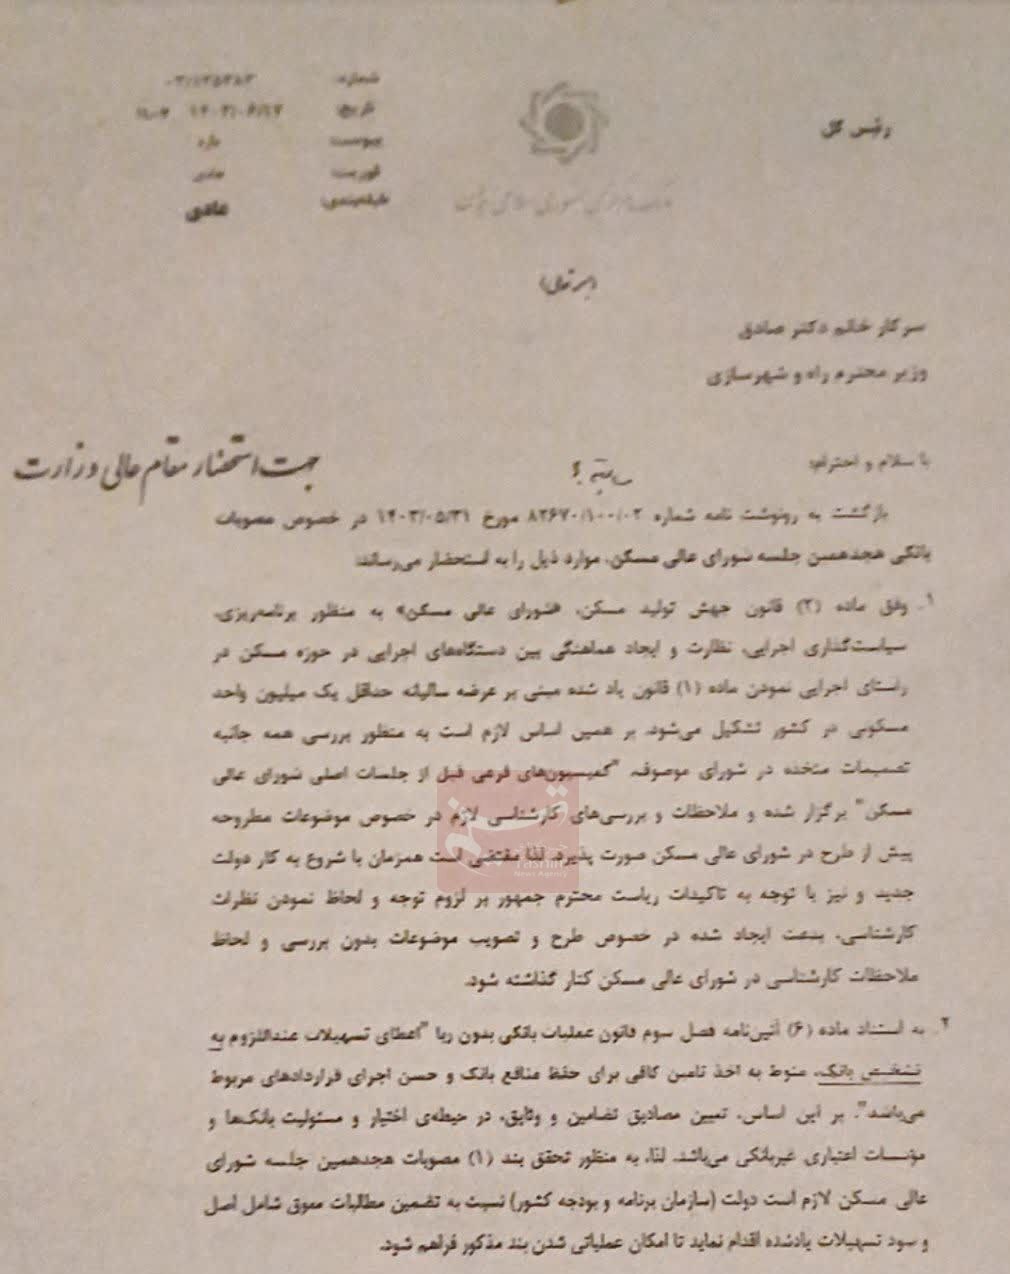 رئیس کل
شماره:
تاریخ: ۱۴۰۳/۰۶/۱۷
پیوست: دارد
فوریت: عادی
طبقه‌بندی: عادی
بانک مرکزی جمهوری اسلامی ایران
«بسمه تعالی»
سرکار خانم دکتر صادق
وزیر محترم راه و شهرسازی
جهت استحضار مقام عالی وزارت
با سلام و احترام؛
بازگشت به رونوشت نامه شماره ۸۲۶۷۰/۱۰۰/۰۲ مورخ ۱۴۰۳/۰۵/۳۱ در خصوص مصوبات
بانکی هجدهمین جلسه شورای عالی مسکن، موارد ذیل را به استحضار می‌رساند:
۱. وفق ماده (۲) قانون جهش تولید مسکن، «شورای عالی مسکن» به منظور برنامه‌ریزی،
سیاست‌گذاری اجرایی، نظارت و ایجاد هماهنگی بین دستگاه‌های اجرایی در حوزه مسکن در
راستای اجرایی نمودن ماده (۱) قانون یاد شده مبنی بر عرضه سالیانه حداقل یک میلیون واحد
مسکونی در کشور تشکیل می‌شود. بر همین اساس لازم است به منظور بررسی همه جانبه
تصمیمات متخذه در شورای موصوف، "کمیسیون‌های فرعی قبل از جلسات اصلی شورای عالی
مسکن" برگزار شده و ملاحظات و بررسی‌های کارشناسی لازم در خصوص موضوعات مطروحه
پیش از طرح در شورای عالی مسکن صورت پذیرد. لذا مقتضی است همزمان با شروع به کار دولت
جدید و نیز با توجه به تاکیدات ریاست محترم جمهور بر لزوم توجه و لحاظ نمودن نظرات
کارشناسی، بدعت ایجاد شده در خصوص طرح و تصویب موضوعات بدون بررسی و لحاظ
ملاحظات کارشناسی در شورای عالی مسکن کنار گذاشته شود.
۲. به استناد ماده (۶) آئین‌نامه فصل سوم قانون عملیات بانکی بدون ربا "اعطای تسهیلات عنداللزوم به
تشخیص بانک، منوط به اخذ تامین کافی برای حفظ منافع بانک و حسن اجرای قراردادهای مربوط
می‌باشد". بر این اساس، تعیین مصادیق تضامین و وثایق، در حیطه‌ی اختیار و مسئولیت بانک‌ها و
مؤسسات اعتباری غیربانکی می‌باشد. لذا، به منظور تحقق بند (۱) مصوبات هجدهمین جلسه شورای
عالی مسکن لازم است دولت (سازمان برنامه و بودجه کشور) نسبت به تضمین مطالبات معوق شامل اصل
و سود تسهیلات یادشده اقدام نماید تا امکان عملیاتی شدن بند مذکور فراهم شود.
تسنیم
Tasnim
News Agency